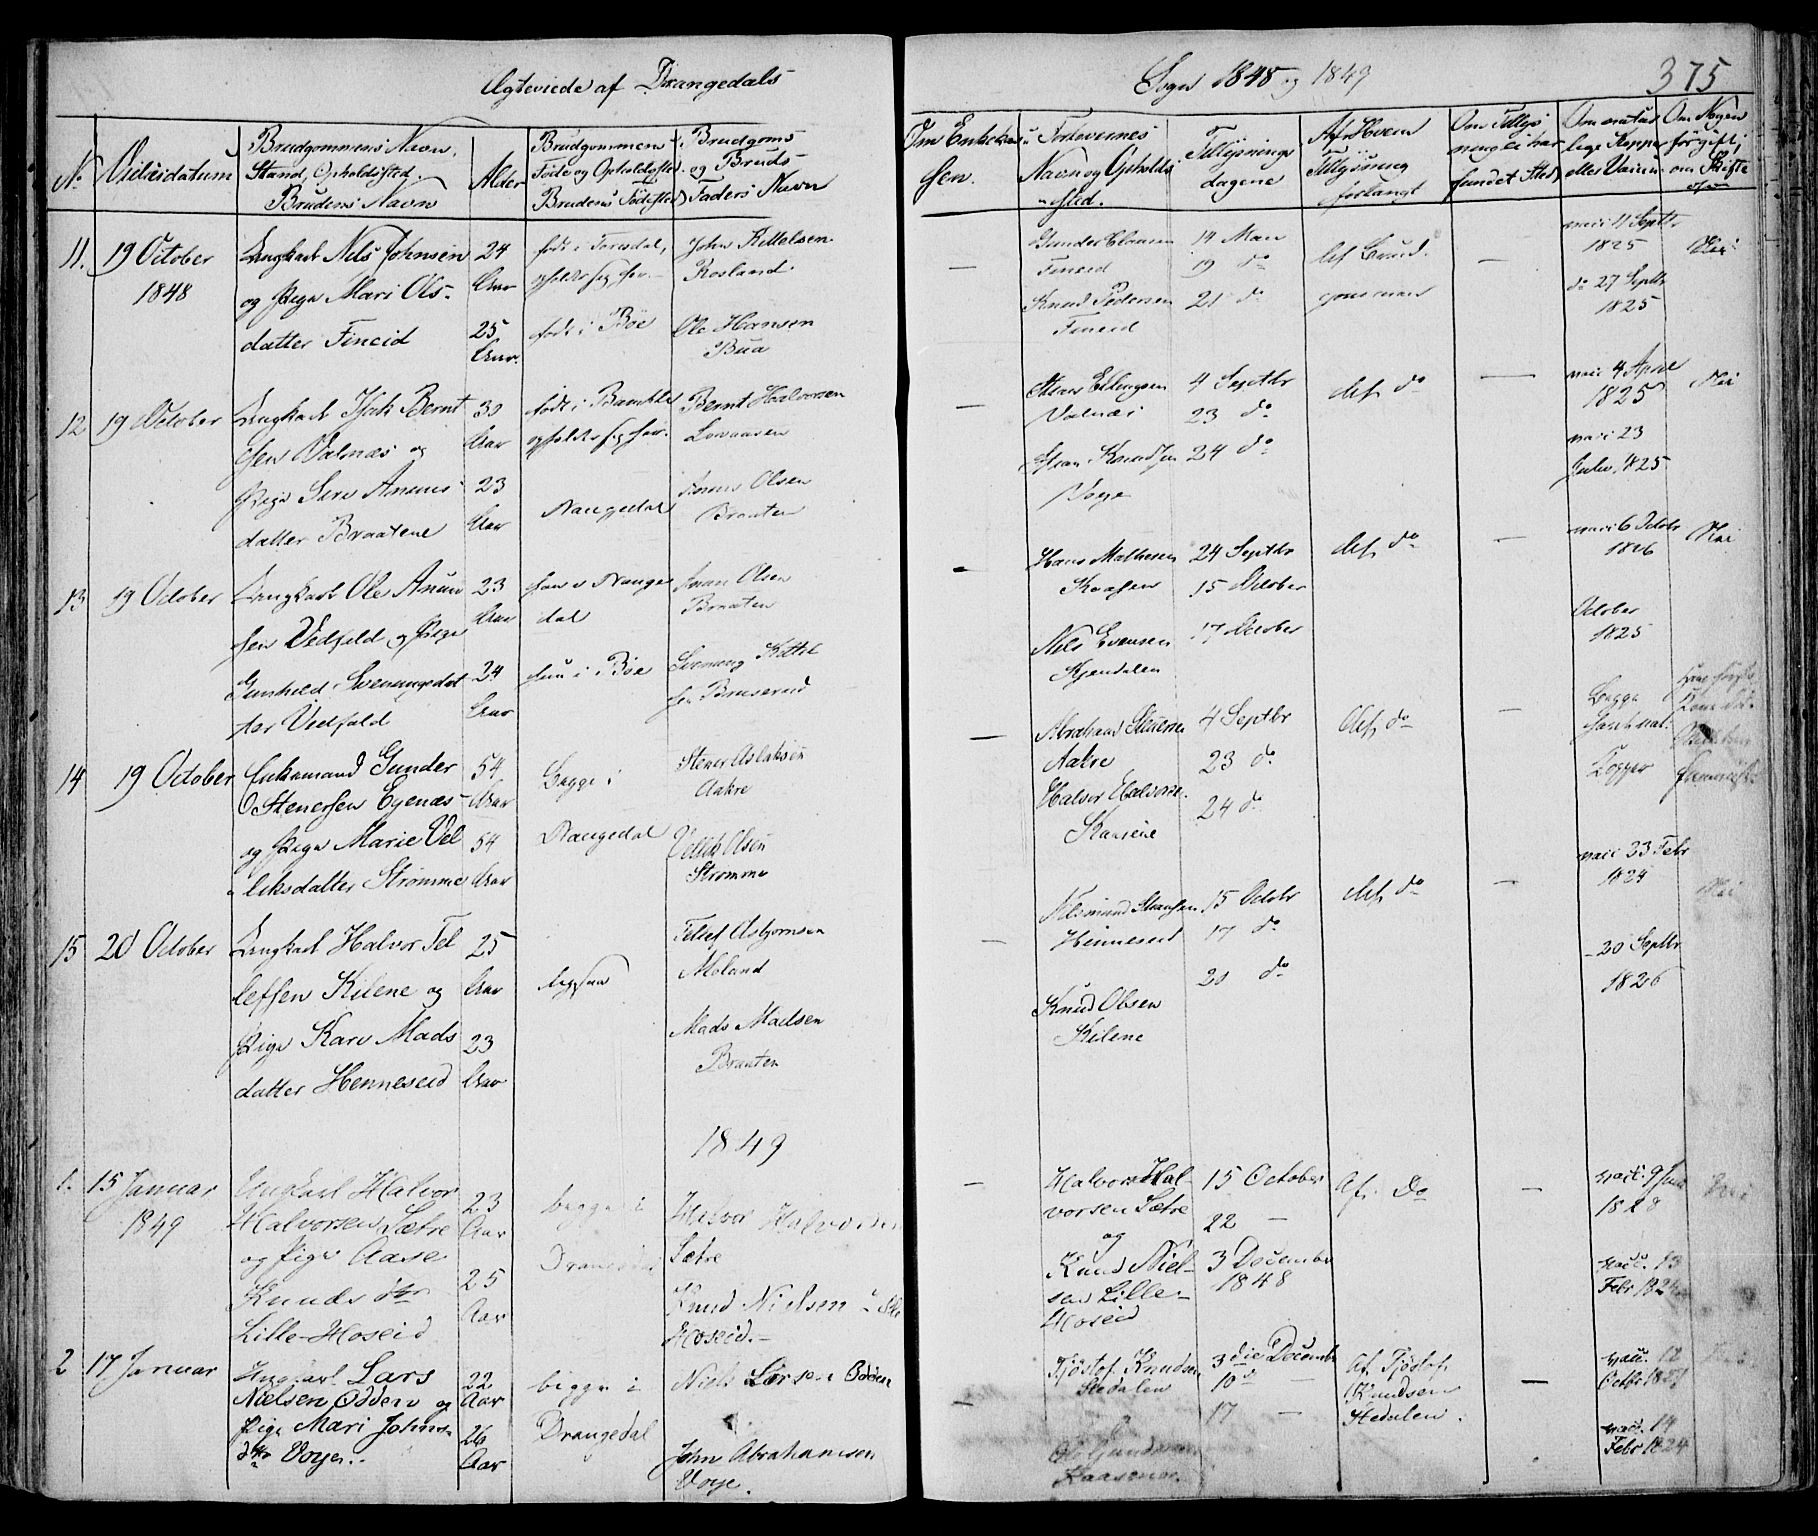 Ægteviede af Drangedals
Sogn 1848 og 1849
375
No
Vielsesdatum
Brudgommens Navn,
Stand, Opholdssted.
Brudens Navn
Alder
Brudgommens
Føde og Opholdssted
Brudens Fødested
Brudgoms
og Bruds
Faders Navn
Om Enke
sen.
Forlovernes
Navn og Opholds
sted.
Tillysnings
dagene
Af Hvem
Tillysning
forlangt
Om Tillys
ning ei har
fundet Sted
Om natur
lige Kopper
eller Vaccin
Om Nogen
før gift,
om Skifte
11.
19 October
1848
Ungkarl Nils Johnsen
og Pige Mari Ols-
datter Fineid
24
Aar
25
Aar
født i Tørsdal,
født i Bøe
John Kittelsen
Rosland
Ole Hansen
Bua
Gunder Clausen
Fineid
Knud Pedersen
Fineid
14 Mai
19 do
21 do
af Brud
gommen
—
vacc 11 Septbr
1825
do 27 Septbr
1825
Nei
12
19 October
Ungkarl Isak Bernt
sen Valnæs og
Pige Anuns
datter Braatene
30
Aar
23
Aar
født i Bamble
opholder sig her.
Drangedal
Bernt Halvorsen
Lovaasen
Anun Olsen
Braaten
Ellingsen
Valnæs
Knudsen
Voje
4 Septbr
23 do
24 do
af do
—
vacc 4 April
1825
vacc 23
1825
Nei
13
19 October
Ungkarl Ole Anun
sen Vedfald og Pige
Gunhild Svenungsdat
ter Vedfald
23
Aar
24
Aar
han i Drange
dal
hun i Bøe
Anun Olsen
Braaten
Svenung Kittel
sen Bruserud
Hans Mathesen
Kaasen
Nils Evensen
Kjendalen
24 Septbr
15 October
17 October
af do
—
vacc 6 Octobr
1826
October
1825
Nei
14
19 October
Enkemand Gunder
Stenersen Egenæs
og Pige Marie Vel
leksdatter Strømme
54
Aar
54
Aar
Begge i
Drangedal
Stener Aslaksen
Aakre
Vellek Olsen
Strømme
Abraham Stenersen
Aakre
Halvor Halvorsen
Kaasene
4 Septbr
23 do
24 do
af do
—
Begge
havt nat.
Kopper
15
20 October
Ungkarl Halvor Tel
lefsen Kilene og
Pige Kari Mads
datter Henneseid
25
Aar
23
Aar
ligesaa
Tellef Asbjørnsen
Moland
Mads Madsen
Braaten
Henneseid
Knud Olsen
Kilene
15 Octobr
17 do
20 do
af do
—
vacc 23 Febr
1824
20 Septbr
1826
Nei
1849
1.
15 Januar
1849
Ungkarl Halvor
Halvorsen Sætre
og Pige Aase
Knudsdtr
Lille-Hoseid
23
Aar
25
Aar
begge i
Drangedal
Halvor Halvorsen
Sætre
Knud Nielsen Lille
Hoseid.-
Halvor Hal-
vorsen Sætre
og
Knud Niel-
sen Lille-
Hoseid
15 October
22 —
3 December
1848
Af do
—
vacc. 9 Juni
1828
vacc. 13
Febr. 1824
Nei
2
17 Januar
Ungkarl Lars
Nielsen Odden og
Pige Mari Johns-
dtr Voje.-
22
Aar
26
Aar
begge i
Drangedal
Niels Larsen Odden
John Abrahamsen
Voje.
Tjøstof Knudsen
Stedalen
Ole Gundersen
Kaasene.
3die December
10de —
17 —
Af Tjøstof
Knudsen
Stedalen.
—
vacc. 12
Octbr. 1827
vacc. 14
Febr 1824